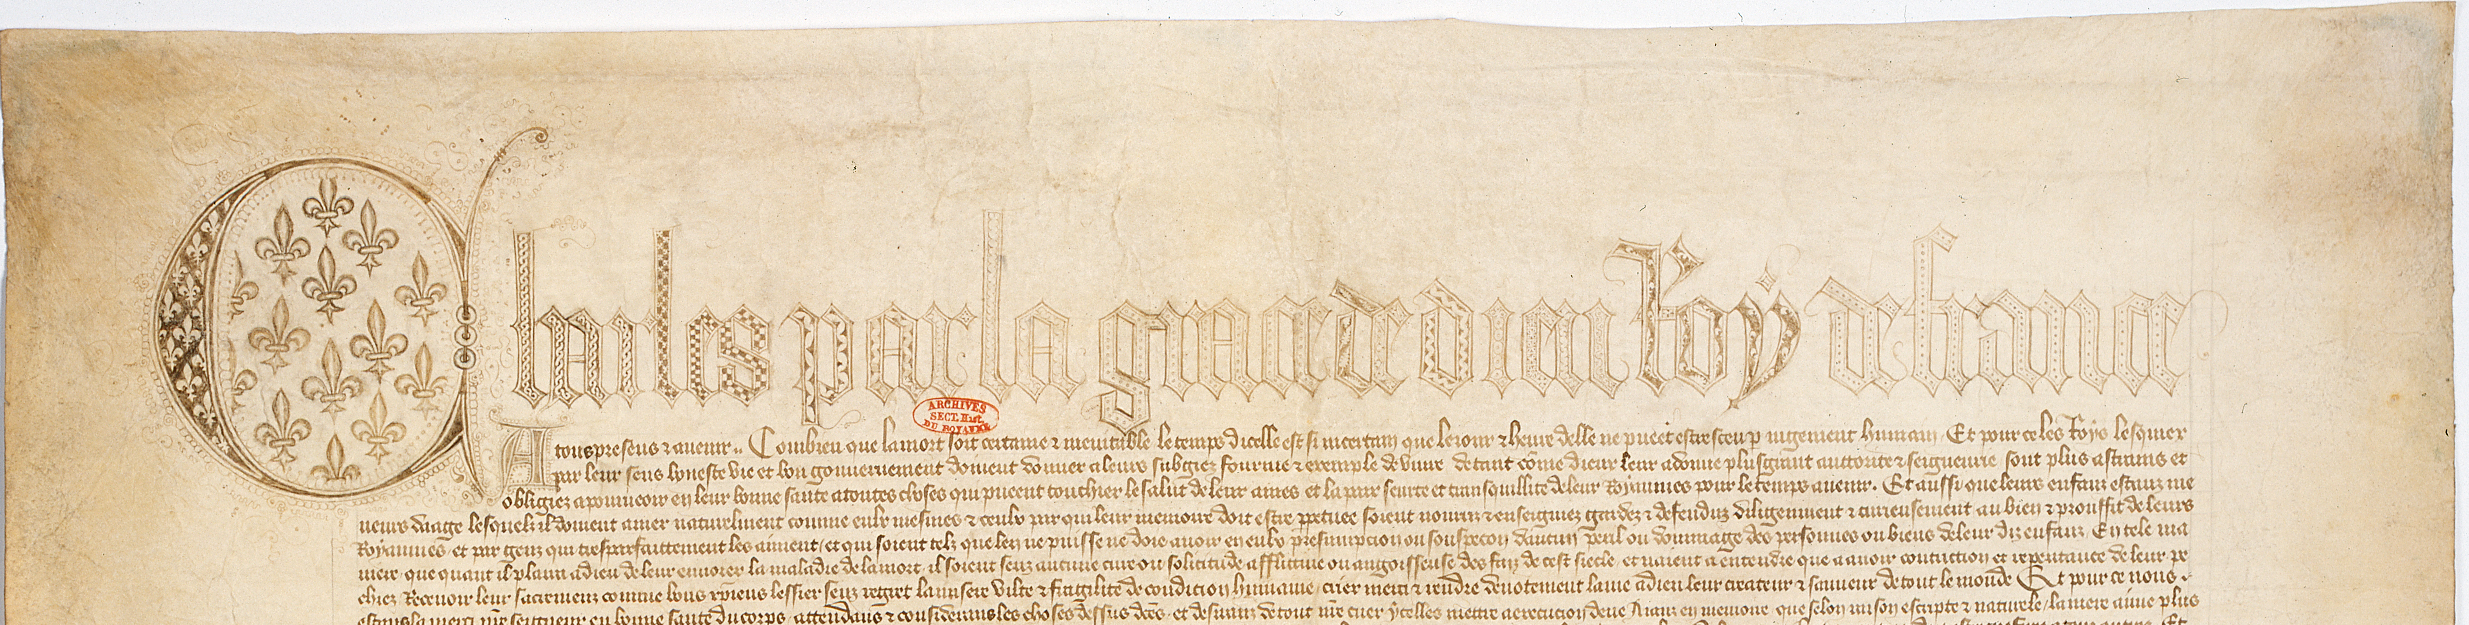 Charles par la grace de dieu Roy de france
ARCHIVES
SECT. Hist.
DU ROYAUME
A tous presens & avenir .. Combien que la mort soit certaine & inevitable le temps dicelle est si incertain que le iour & heure delle ne pueent estre sceu p iugement humain . Et pour ce les Roys lesquier
par leur sens honeste vie et bon gouvernement doivent donner a leurs subgiez fourme & exemple de vivre de tant come dieux leur a donne plus grant auttorite & seigneurie sont plus astrains et
obligiez a pourveoir en leur bonne sante a toutes choses qui pueent touchier le salut de leur ames et la paix seurte et transquillite de leur Royaumes pour le temps avenir . Et aussi que leurs enfans estanz me
neurs daage lesquelz il doivent amer naturelment comme eulx mesmes & ceulx par qui leur memoire doit estre ppetuee soient nourriz & enseigniez gardez & defenduz diligemment & curieusement au bien & prouffit de leurs
Royaumes et par genz qui tresparfaittement les aiment / et qui soient telz que len ne puisse ne doie avoir en eulx presumpcion ou souspecon daucun peril ou dommage des personnes ou biens de leur diz enfanz . En tele ma
niere que quant il plaira a dieu de leur envoier la maladie de la mort il soient senz aucune cure ou solicitude afflictive ou angoisseuse des faiz de cest siecle et naient a entendre que a avoir contriction et repentance de leur pe
chiez Recevoir leur sacremenz comme bons xpiens lessier senz regret la misere vilte & fragilite de condition humaine crier merci & rendre devotement lame a dieu leur createur & sauveur de tout le monde Et pour ce nous
estans la merci nre seigneur en bonne sante du corps attendans & considerans les choses dessus dces et desirans de tout nre cuer ycelles mettre a execution deue Aianz en memoire que selon raison escripte & naturele la mere aime plus